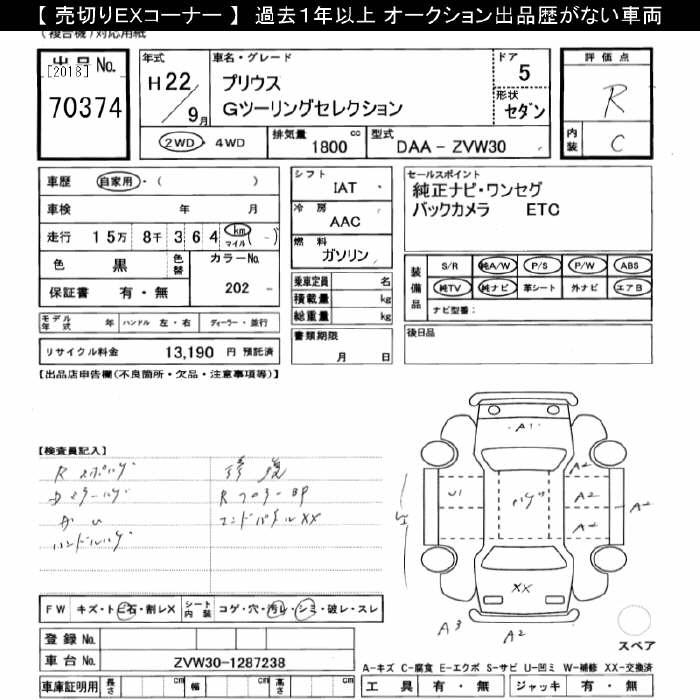 【 売切りEXコーナー 】 過去1年以上 オークション出品歴がない車両
(複合機)対応用紙
出品No.
[2018]
70374
年式
H22/9月
車名・グレード
プリウス
Gツーリングセレクション
ドア
5
形状
セダン
評価点
R
内装
C
2WD ・ 4WD
排気量
1800 cc
型式
DAA-ZVW30
車歴 自家用・( )
車検 年 月
走行 15万 8千 3 6 4 km マイル (-)
色 黒 色替 カラーNo.
保証書 有・無 202
シフト
IAT
冷房
AAC
燃料
ガソリン
乗車定員 名
積載量 kg
総重量 kg
セールスポイント
純正ナビ・ワンセグ
バックカメラ ETC
装備品
S/R 純A/W P/S P/W ABS
純TV 純ナビ 革シート 外ナビ エアB
ナビ型番:
モデル年式 年 ハンドル 左・右 ディーラー・並行
リサイクル料金 13,190 円 預託済
書類期限
月 日
後日品
【出品店申告欄(不良箇所・欠品・注意事項等)】
【検査員記入】
修復
XX
A1
A2
A2
A2
A2
U1
XX
A3
A2
FW キズ・トビ石・割レX シート内装 コゲ・穴・汚レ・シミ・破レ・スレ
登録No.
車台No. ZVW30-1287238
車庫証明用 長さ cm 幅 cm 高さ cm
スペア
A-キズ C-腐食 E-エクボ S-サビ U-凹ミ W-補修 XX-交換済
工具 有・無 ジャッキ 有・無